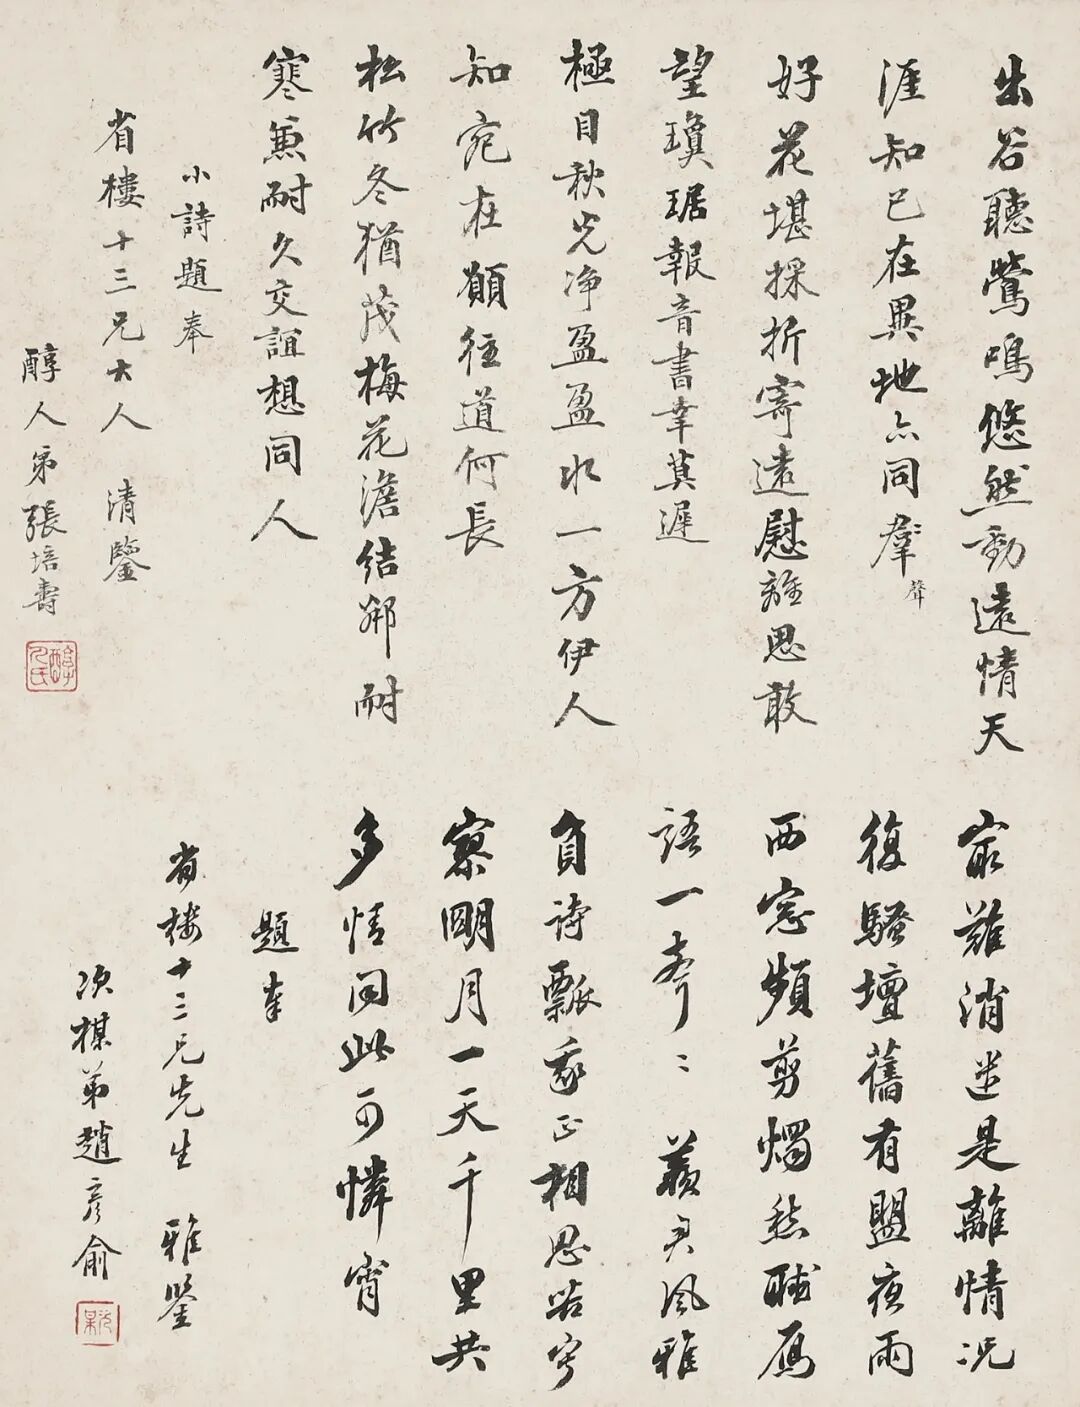 出谷聽鶯鳴悠然動遠情天
涯知己在異地亦同羣聲
好花堪採折寄遠慰離思敢
望瓊琚報音書幸莫遲
極目秋光净盈盈水一方伊人
知宛在願往道何長
松竹冬猶茂梅花澹結鄰耐
寒兼耐久交誼想同人
小詩題奉
省樓十三兄大人 清鑒
醇人弟張培壽
醇人氏
最難消遣是離情況
復騷壇舊有盟夜雨
西窓頻剪燭愁聽雁
語一聲〻 羨君風雅
負詩瓢我正相思苦寂
寮明月一天千里共
多情同此可憐宵
題奉
省樓十三兄先生 雅鑒
次楳弟趙彥俞
次楳